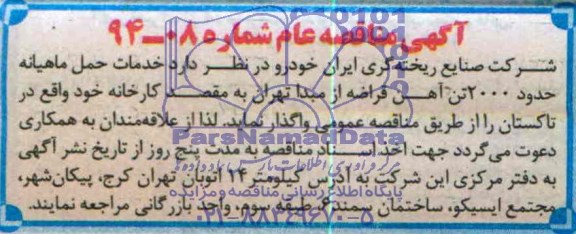 آگهی مناقصه عام شماره ۰۸-۹۴
شرکت صنایع ریخته گری ایران خودرو در نظر دارد خدمات حمل ماهیانه
حدود ۲۰۰۰ تن آهن قراضه از مبدا تهران به مقصد کارخانه خود واقع در
تاکستان را از طریق مناقصه عمومی واگذار نماید. لذا از علاقه‌مندان به همکاری
دعوت می گردد جهت اخذ اسناد مناقصه به مدت پنج روز از تاریخ نشر آگهی
به دفتر مرکزی این شرکت به آدرس کیلومتر ۱۴ اتوبان تهران کرج، پیکان‌شهر،
مجتمع ایسیکو، ساختمان سمند ۶، طبقه سوم، واحد بازرگانی مراجعه نمایند.
ParsNamadData
پایگاه اطلاع رسانی مناقصه و مزایده
۰۲۱-۸۸۳۴۹۶۷۰-۵